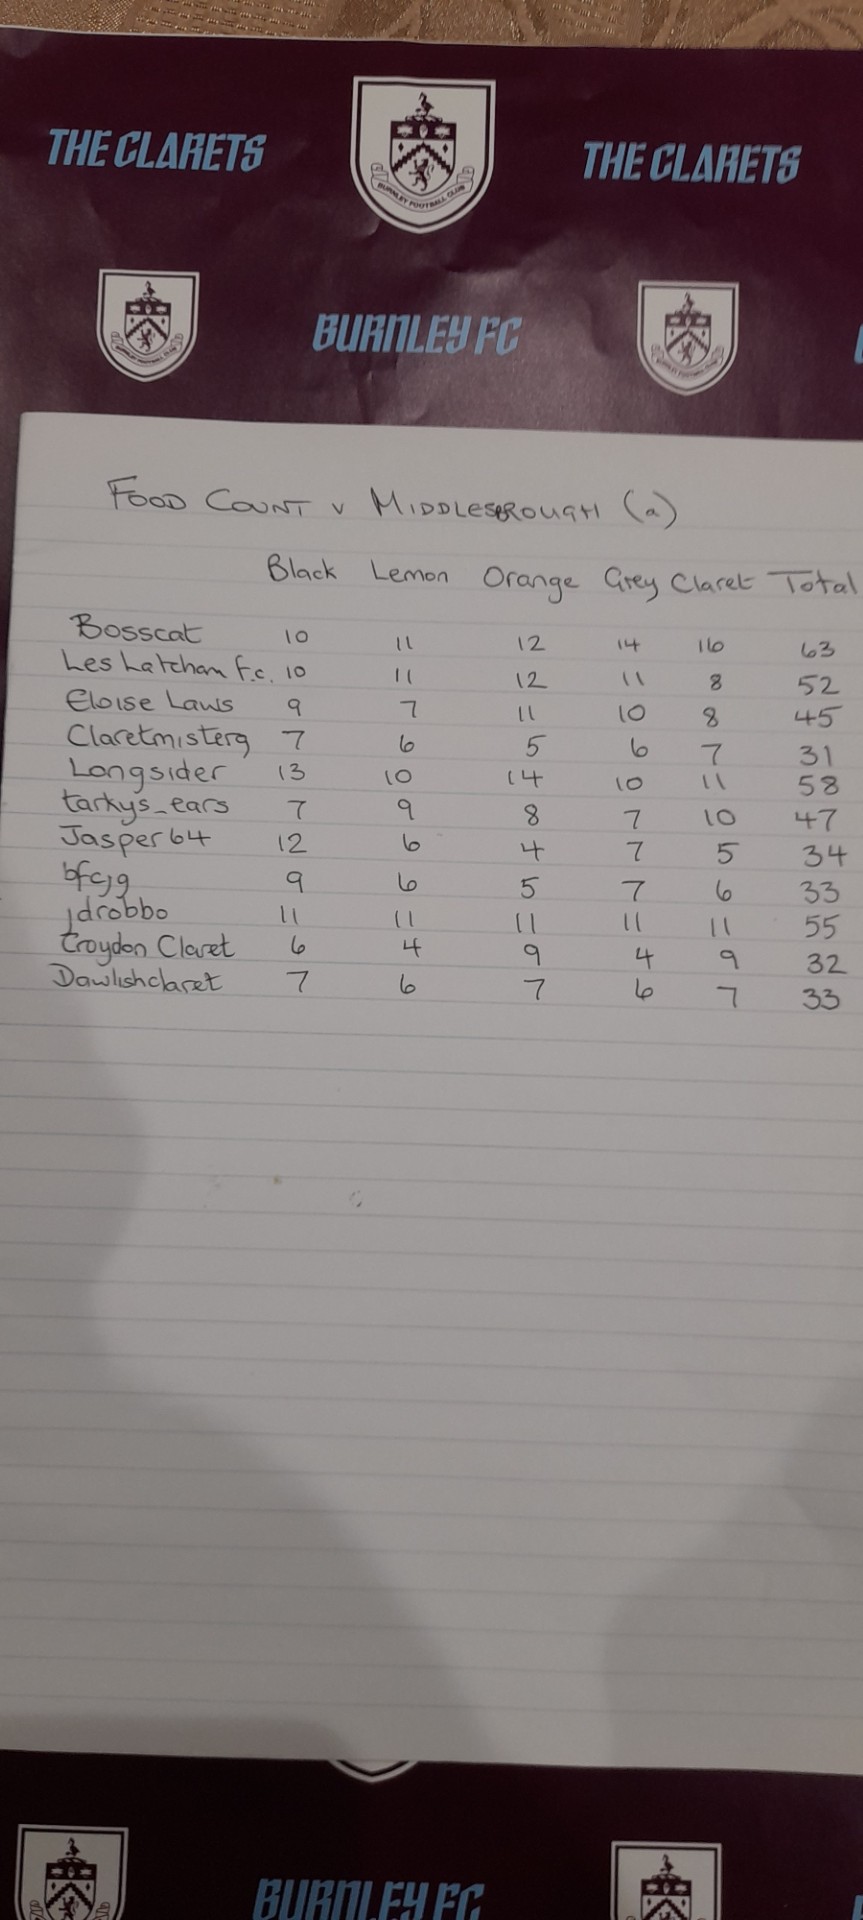 THE CLARETS
BURNLEY FOOTBALL CLUB
THE CLARETS
BURNLEY FC
FOOD COUNT v MIDDLESBROUGH (a)
Black Lemon Orange Grey Claret Total
Bosscat 10 11 12 14 16 63
Les Latcham F.c. 10 11 12 11 8 52
Eloise Laws 9 7 11 10 8 45
Claretmisterg 7 6 5 6 7 31
Longsider 13 10 14 10 11 58
tarkys_ears 7 9 8 7 10 47
Jasper64 12 6 4 7 5 34
bfcjg 9 6 5 7 6 33
jdrobbo 11 11 11 11 11 55
Croydon Claret 6 4 9 4 9 32
Dawlishclaret 7 6 7 6 7 33
BURNLEY FC